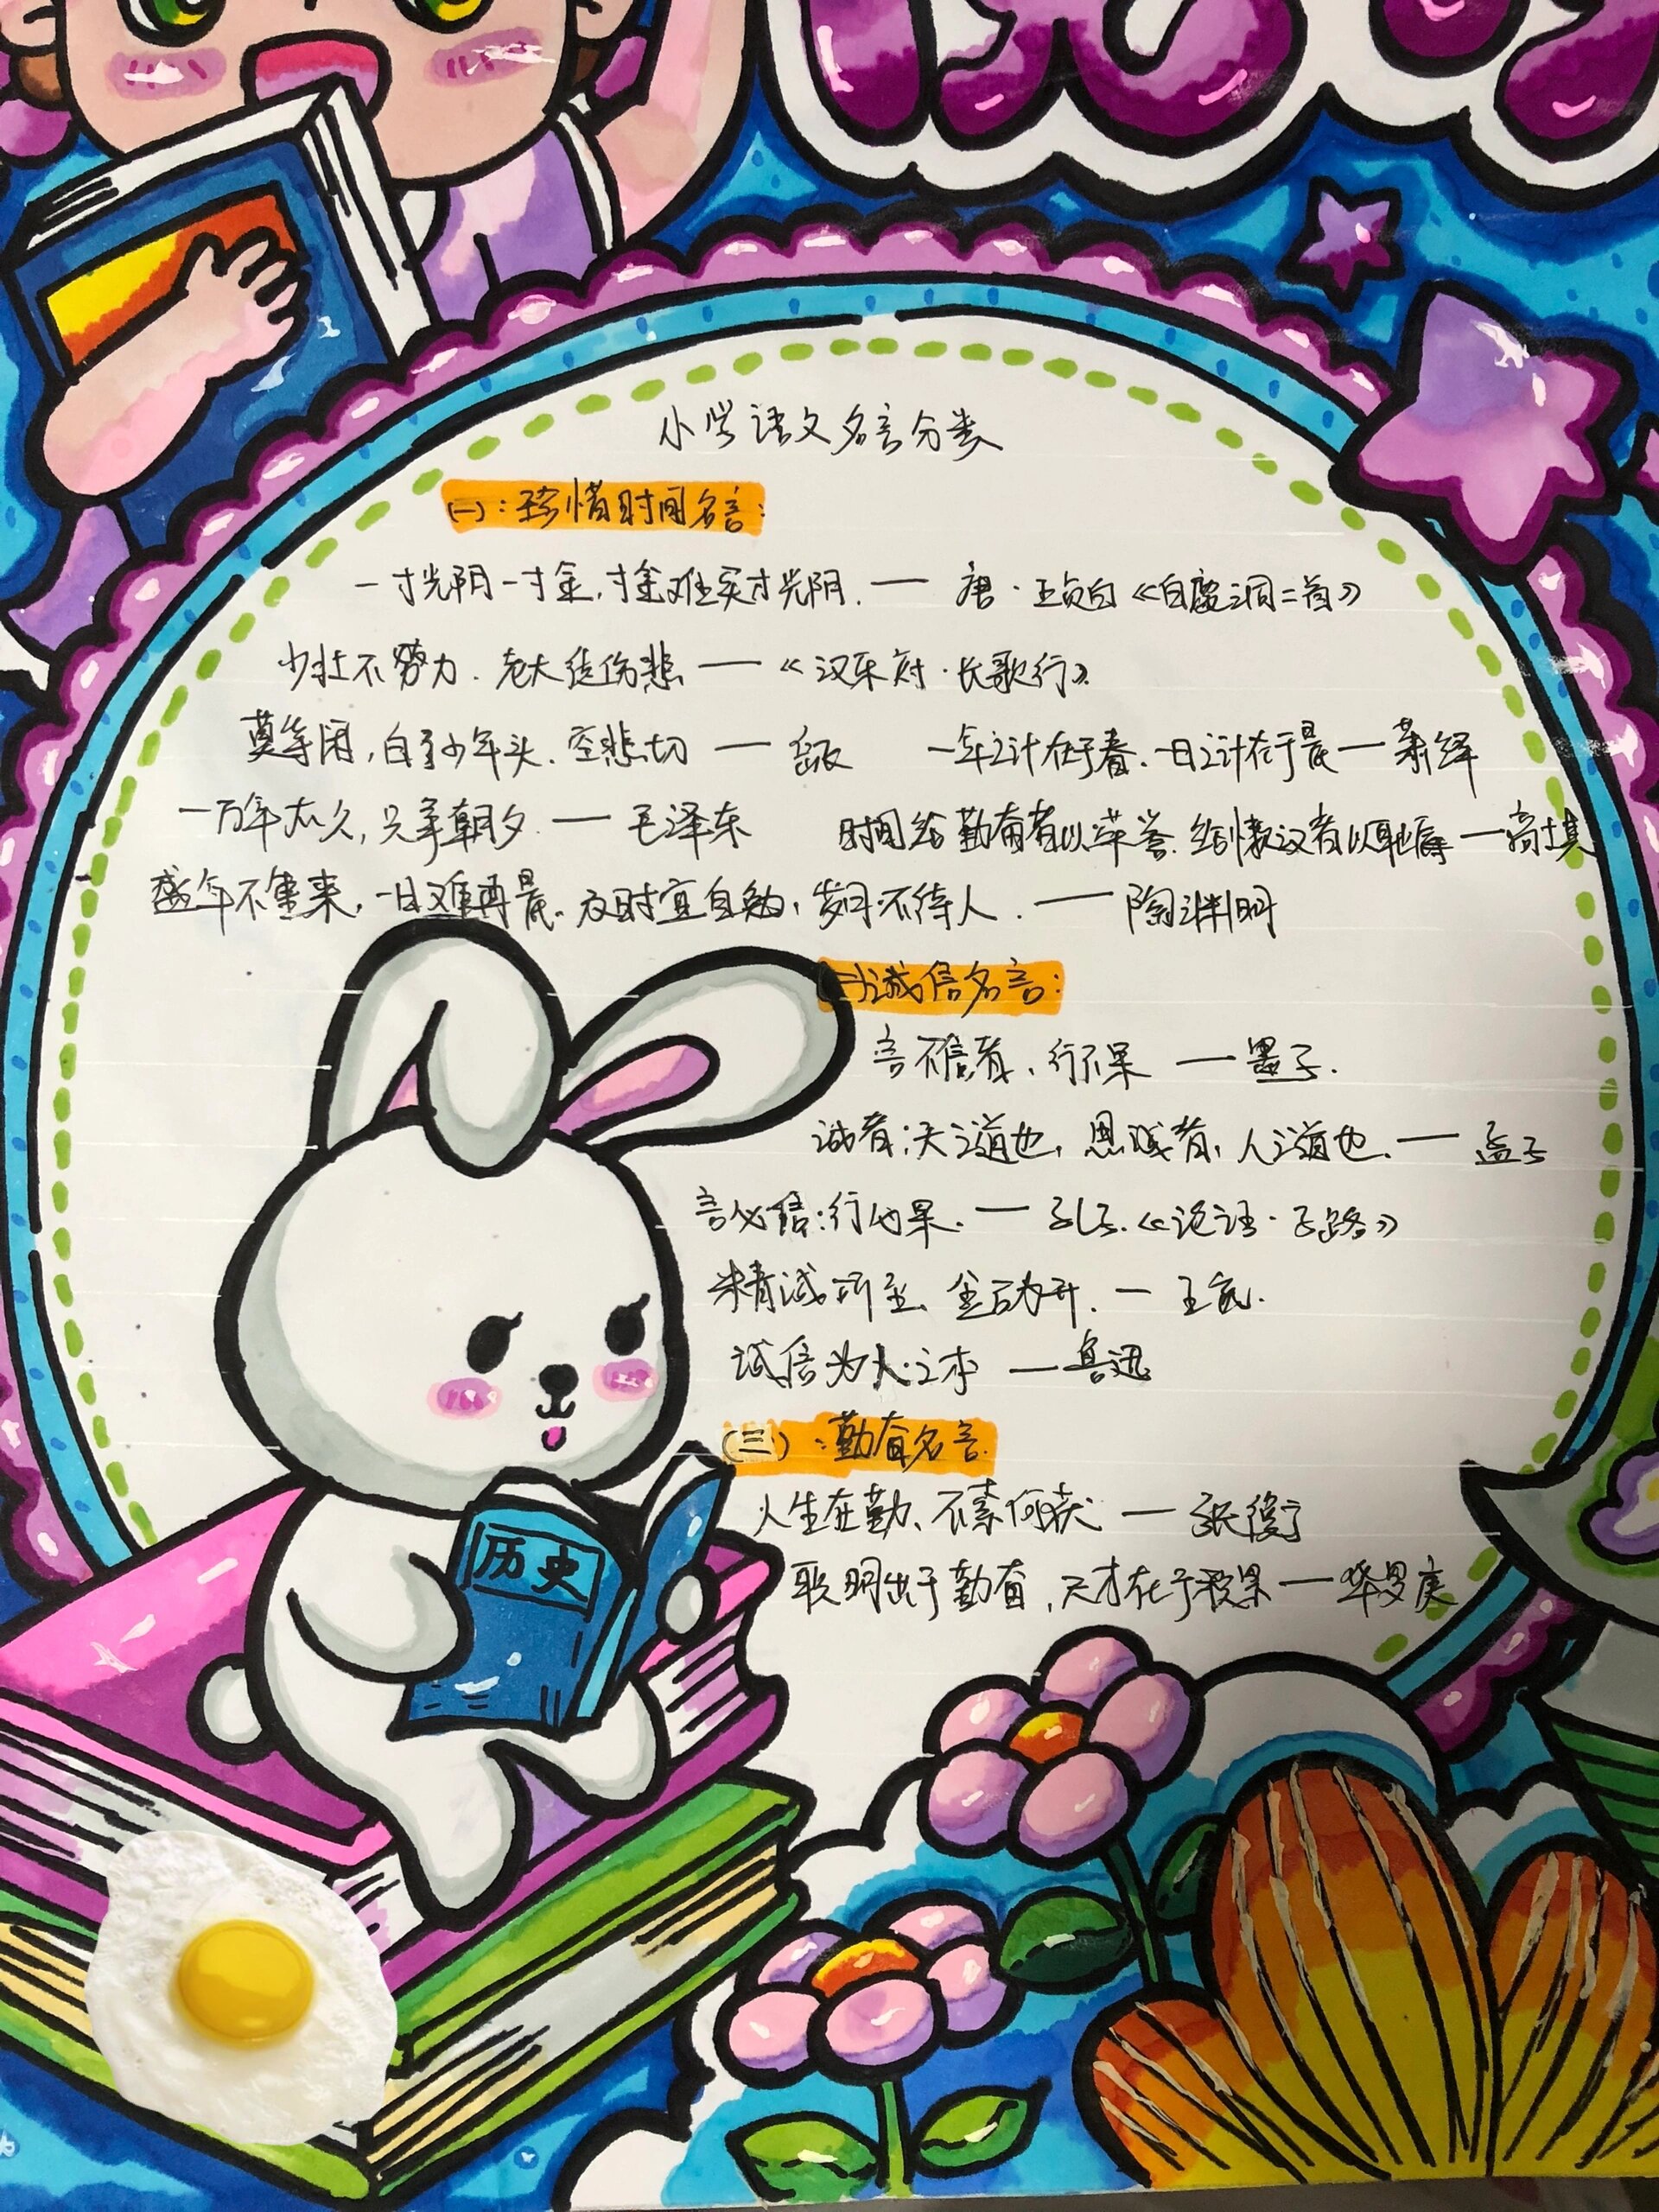 小学语文名言分类
(一):珍惜时间名言:
一寸光阴一寸金,寸金难买寸光阴.—— 唐·王贞白《白鹿洞二首》
少壮不努力.老大徒伤悲——《汉乐府·长歌行》
莫等闲,白了少年头.空悲切——岳飞 一年之计在于春.一日之计在于晨—萧绎
一万年太久,只争朝夕.——毛泽东 时间给勤奋者以荣誉.给懒汉者以耻辱—高士其
盛年不重来,一日难再晨.及时宜自勉,岁月不待人.——陶渊明
(二)诚信名言:
言不信者,行不果——墨子.
诚者;天之道也,思诚者,人之道也.——孟子
言必信;行必果.——孔子.《论语·子路》
精诚所至、金石为开.—王充.
诚信为人之本——鲁迅
(三):勤奋名言:
人生在勤、不索何获——张衡
聪明出于勤奋,天才在于积累——华罗庚
历史